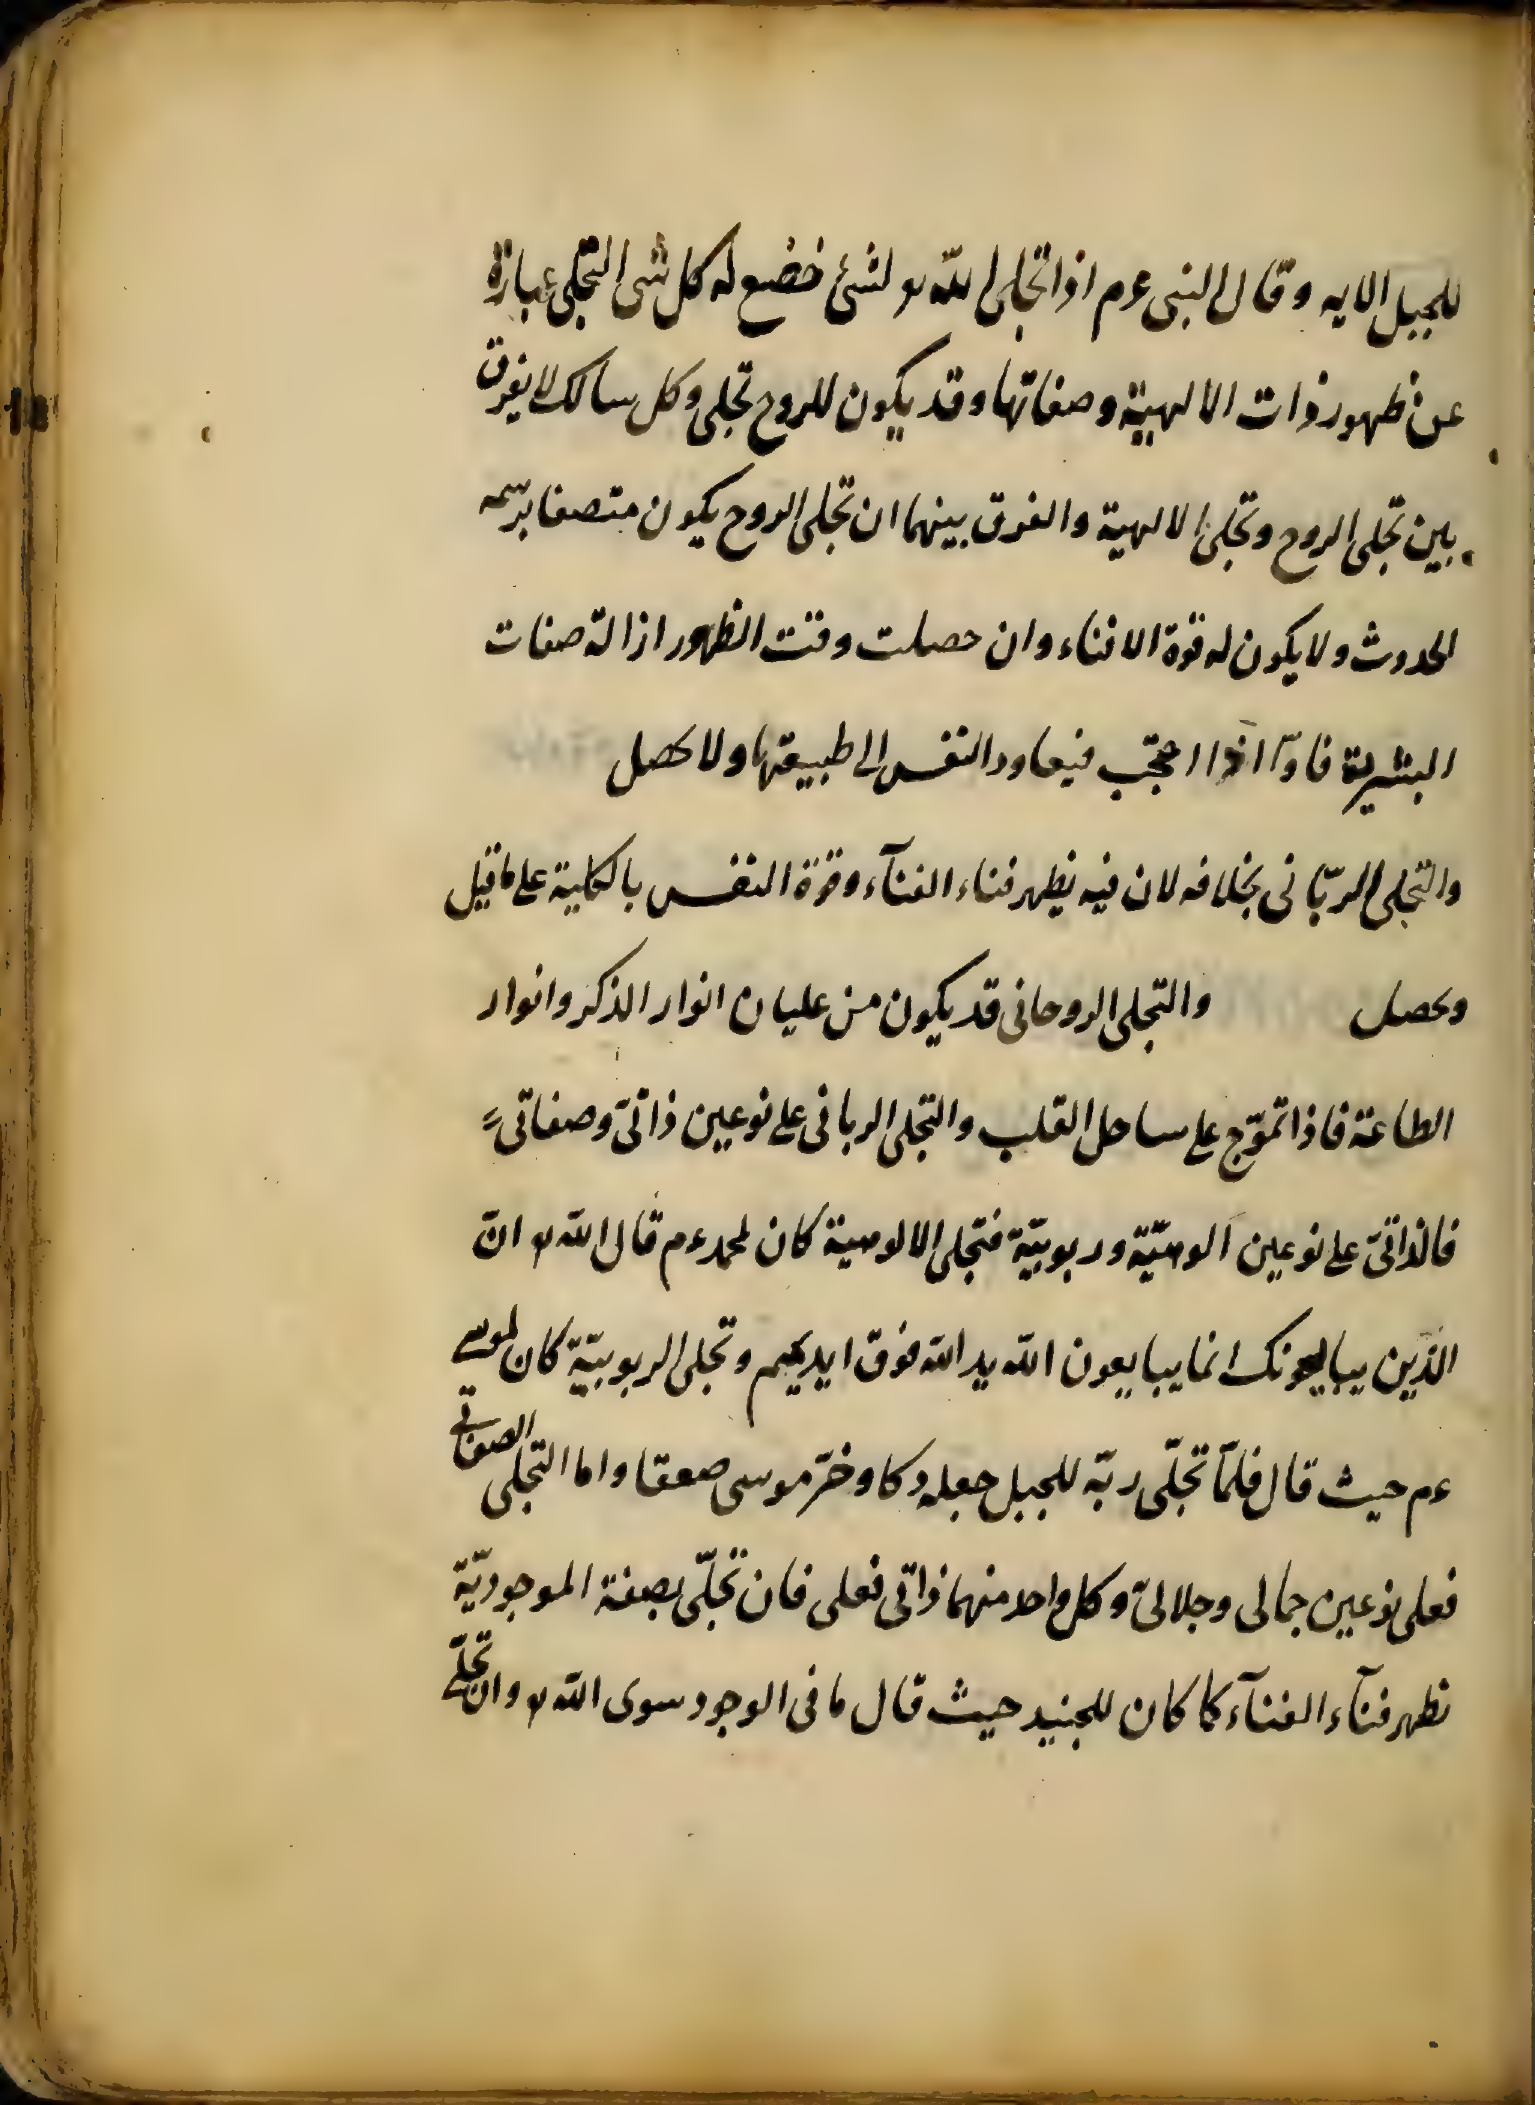 للجبل الايه وقال النبى عم اذا تجلى الله لشئ خضع له كل شى التجلى عبارة
عن ظهور ذات الالهية وصفاتها وقد يكون للروح تجلى وكل سالك لا يفرق
بين تجلى الروح وتجلى الالهية والفرق بينهما ان تجلى الروح يكون متصفا برسمه
الحدوث ولا يكون له قوة الافناء وان حصلت وقت الظهور ازالة صفات
البشرية اذا احتجب فيعاود النفس الى طبيعتها ولا يحصل
والتجلى الربّانى بخلافه لان فيه يظهر فناء الفنآء وقوة النفس بالكلية على ما قيل
ويحصل والتجلى الروحانى قد يكون من غليان انوار الذكر وانوار
الطاعة فاذا تموّج على ساحل القلب والتجلى الربانى على نوعين ذاتىّ وصفاتىّ
فالذاتىّ على نوعين الوهيّة وربوبيّة فتجلى الالوهية كان لمحمد عم قال الله انّ
الذّين يبايعونك انما يبايعون الله يد الله فوق ايديهم وتجلى الربوبيّة كان لموسى
عم حيث قال فلمّا تجلّى ربّه للجبل جعله دكا وخرّ موسى صعقا واما التجلى الصفاتى
فعلى نوعين جمالى وجلالىّ وكل واحد منهما ذاتى فعلى فان تجلّى بصفة الموجوديّة
تظهر فنآء الفنآء كما كان للجنيد حيث قال ما فى الوجود سوى الله وان تجلّى